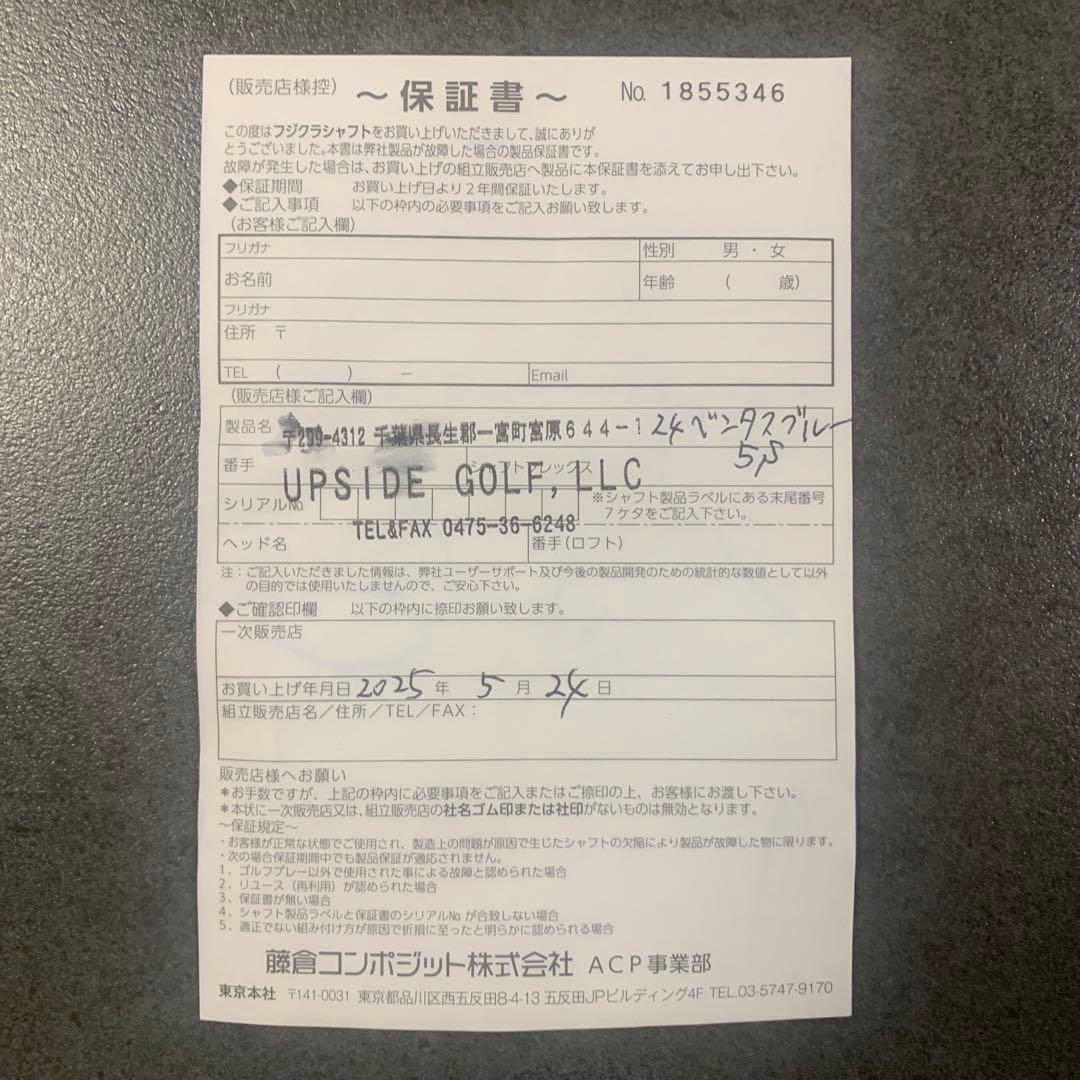 (販売店様控)
～保証書～
No. 1855346
この度はフジクラシャフトをお買い上げいただきまして、誠にありが
とうございました。本書は弊社製品が故障した場合の製品保証書です。
故障が発生した場合は、お買い上げの組立販売店へ製品に本保証書を添えてお申し出下さい。
◆保証期間 お買い上げ日より2年間保証いたします。
◆ご記入事項 以下の枠内の必要事項をご記入お願い致します。
(お客様ご記入欄)
フリガナ
性別 男 ・ 女
お名前
年齢 ( 歳)
フリガナ
住所 〒
TEL ( ) ー
Email
(販売店様ご記入欄)
製品名
〒299-4312 千葉県長生郡一宮町宮原644-1
24ベンタスブルー
5S
番手
シャフトフレックス
UPSIDE GOLF, LLC
シリアルNo.
※シャフト製品ラベルにある末尾番号
7ケタをご記入下さい。
TEL&FAX 0475-36-6248
ヘッド名
番手(ロフト)
注：ご記入いただきました情報は、弊社ユーザーサポート及び今後の製品開発のための統計的な数値として以外
の目的では使用いたしませんので、ご安心下さい。
◆ご確認印欄 以下の枠内に捺印お願い致します。
一次販売店
お買い上げ年月日 2025 年 5 月 24 日
組立販売店名／住所／TEL／FAX：
販売店様へお願い
＊お手数ですが、上記の枠内に必要事項をご記入またはご捺印の上、お客様にお渡し下さい。
＊本状に一次販売店又は、組立販売店の社名ゴム印または社印がないものは無効となります。
～保証規定～
・お客様が正常な状態でご使用され、製造上の問題が原因で生じたシャフトの欠陥により製品が故障した物に限ります。
・次の場合保証期間中でも製品保証が適応されません。
1、ゴルフプレー以外で使用された事による故障と認められた場合
2、リユース（再利用）が認められた場合
3、保証書が無い場合
4、シャフト製品ラベルと保証書のシリアルNo.が合致しない場合
5、適正でない組み付け方が原因で折損に至ったと明らかに認められる場合
藤倉コンポジット株式会社 ACP事業部
東京本社 〒141-0031 東京都品川区西五反田8-4-13 五反田JPビルディング4F TEL.03-5747-9170